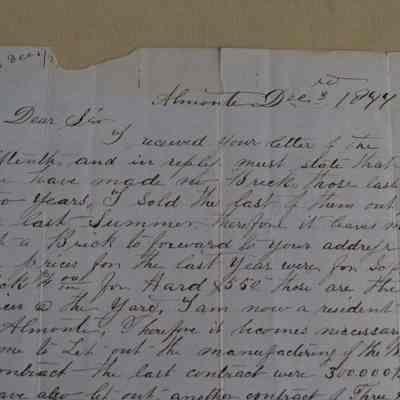 Almonte Dec 3rd 1877
Dear Sir
I received your letter of the
and in reply must state that
have made no Brick those last
years, I sold the last of them out
last Summer therefore it leaves m
a Brick to forward to your addre
prices for the last Year were for Sof
for Hard $5.50 these are the
@ the Yard, I am now a resident
Almonte, Therefore it becomes necessar
me to Let out the manufacturing of the B
contract the last contract were 300.000
have also let out another contract of Thre